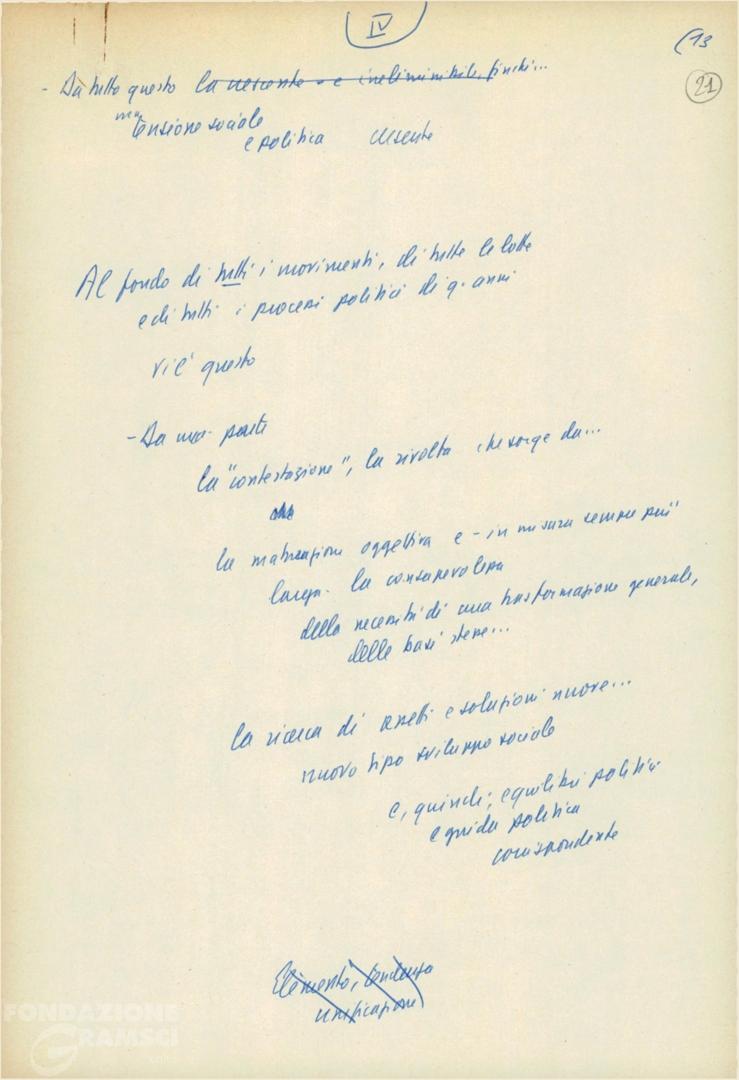 IV
(13
21
- Da tutto questo la crescente - e ineliminabile, finchè...
una tensione sociale
e politica crescente
Al fondo di tutti i movimenti, di tutte le lotte
e di tutti i processi politici di q. anni
vi è questo
- Da una parte
la "contestazione", la rivolta che sorge da...
la maturazione oggettiva e - in misura sempre più
larga - la consapevolezza
della necessità di una trasformazione generale,
delle basi stesse...
la ricerca di assetti e soluzioni nuove...
nuovo tipo sviluppo sociale
e, quindi, equilibri politici
e guida politica
corrispondente
Elemento, tendenza
unificazione
FONDAZIONE
GRAMSCI